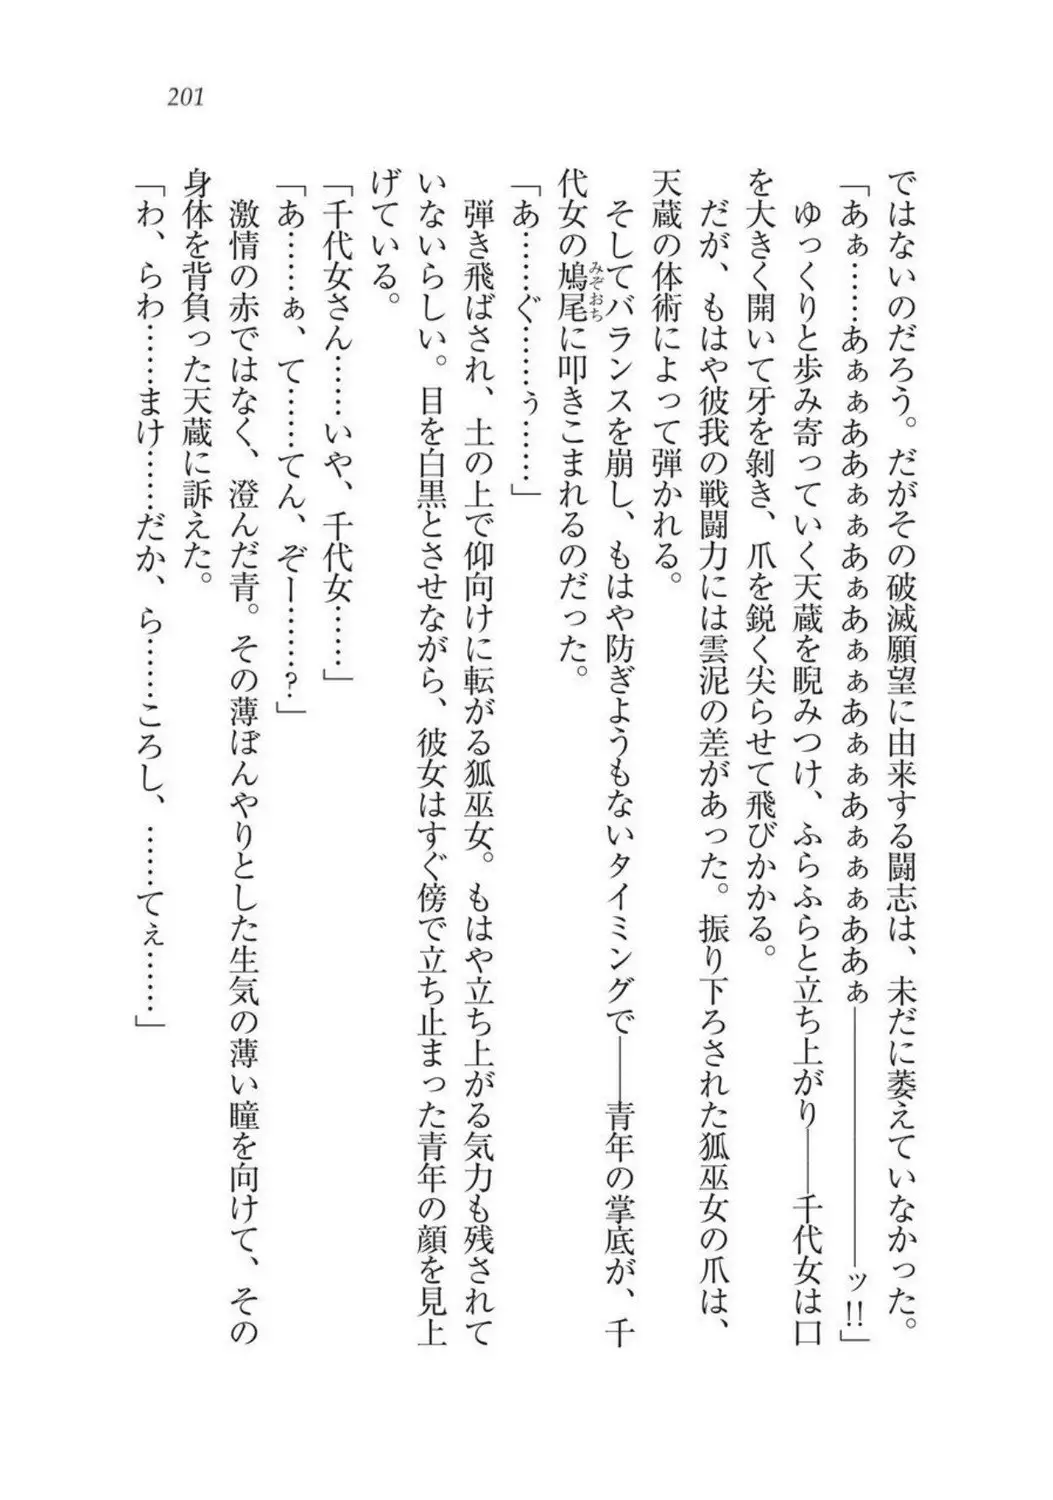 201
ではないのだろう。だがその破滅願望に由来する闘志は、未だに萎えていなかった。
「あぁ……あぁぁああぁぁあぁあぁぁあぁぁあぁぁぁああぁ――――――――ッ!!」
ゆっくりと歩み寄っていく天蔵を睨みつけ、ふらふらと立ち上がり――千代女は口
を大きく開いて牙を剝き、爪を鋭く尖らせて飛びかかる。
だが、もはや彼我の戦闘力には雲泥の差があった。振り下ろされた狐巫女の爪は、
天蔵の体術によって弾かれる。
そしてバランスを崩し、もはや防ぎようもないタイミングで――青年の掌底が、千
代女の鳩尾みぞおちに叩きこまれるのだった。
「あ……ぐ……ぅ……」
弾き飛ばされ、土の上で仰向けに転がる狐巫女。もはや立ち上がる気力も残されて
いないらしい。目を白黒とさせながら、彼女はすぐ傍で立ち止まった青年の顔を見上
げている。
「千代女さん……いや、千代女……」
「あ……ぁ、て……てん、ぞー……?」
激情の赤ではなく、澄んだ青。その薄ぼんやりとした生気の薄い瞳を向けて、その
身体を背負った天蔵に訴えた。
「わ、らわ……まけ……だか、ら……ころし、……てぇ……」